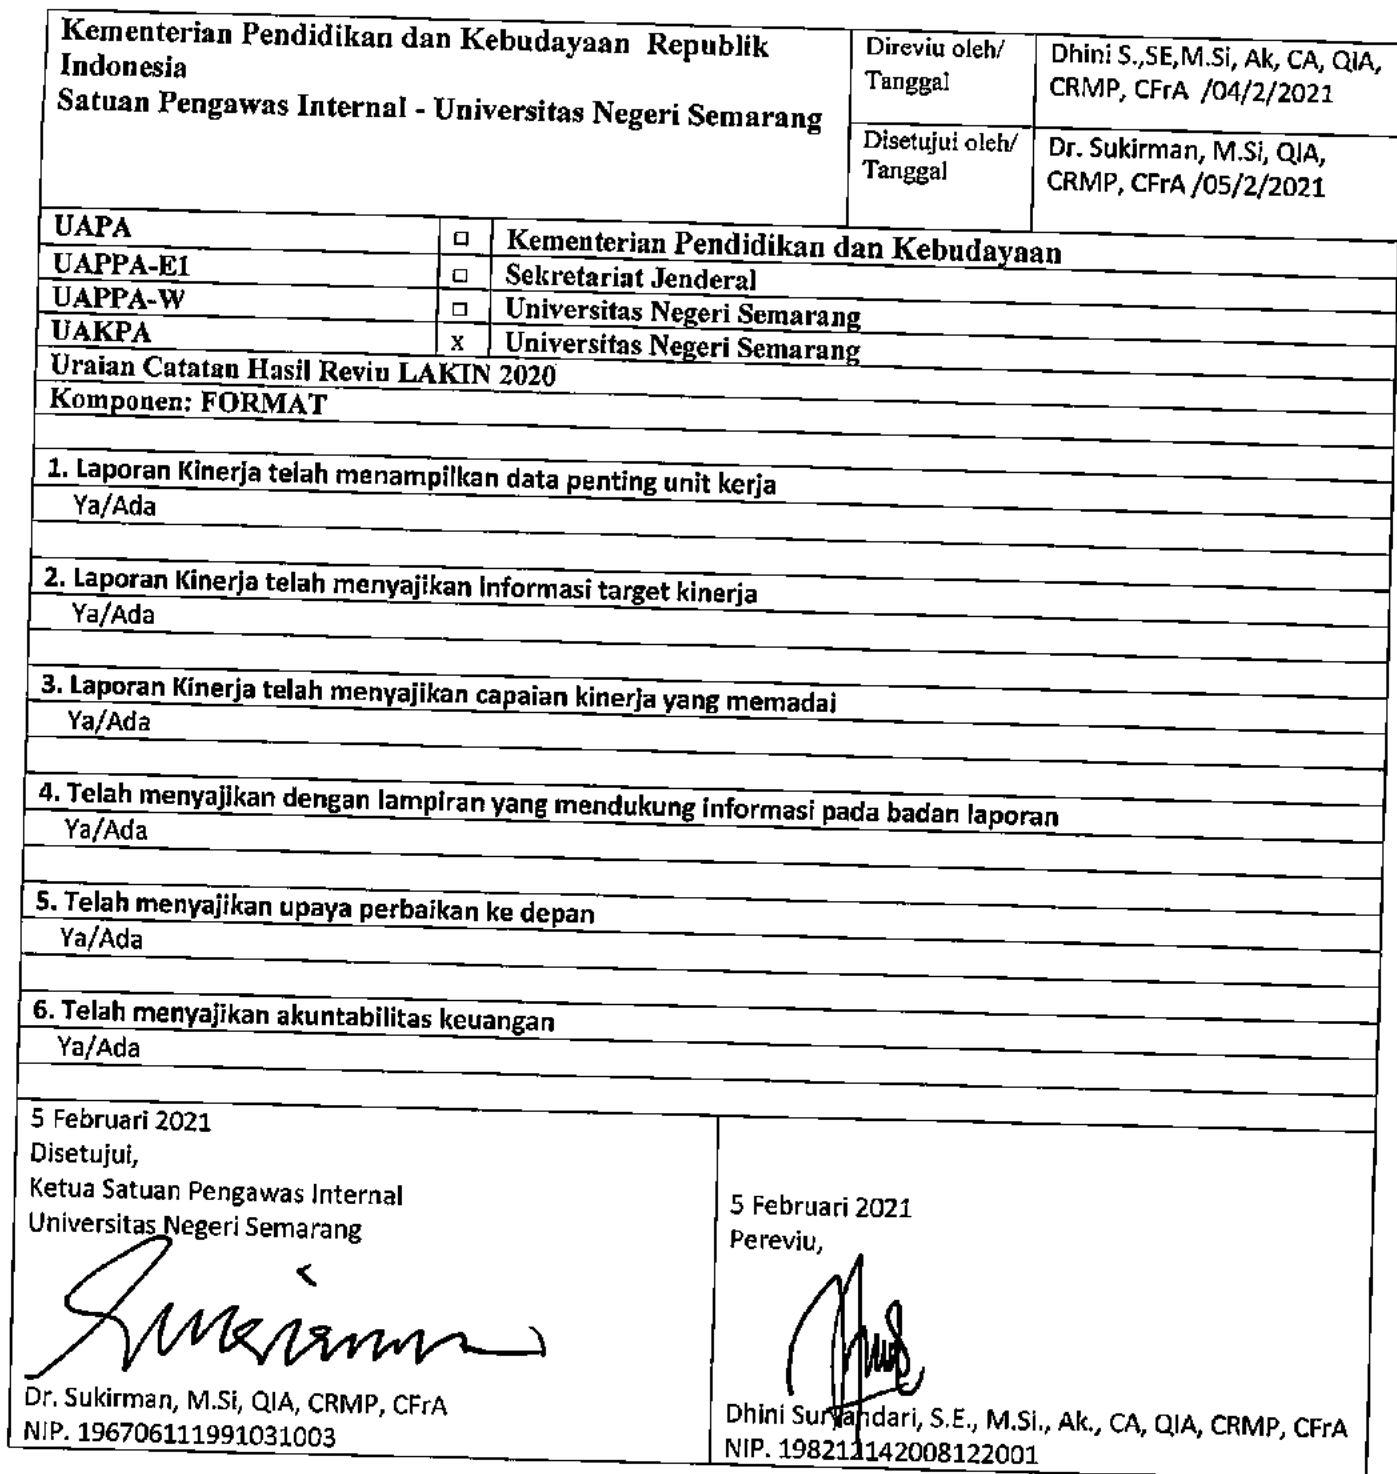 Kementerian Pendidikan dan Kebudayaan Republik
Indonesia
Satuan Pengawas Internal - Universitas Negeri Semarang
Direviu oleh/
Tanggal
Dhini S.,SE,M.Si, Ak, CA, QIA,
CRMP, CFrA /04/2/2021
Disetujui oleh/
Tanggal
Dr. Sukirman, M.Si, QIA,
CRMP, CFrA /05/2/2021
UAPA □ Kementerian Pendidikan dan Kebudayaan
UAPPA-E1 □ Sekretariat Jenderal
UAPPA-W □ Universitas Negeri Semarang
UAKPA x Universitas Negeri Semarang
Uraian Catatan Hasil Reviu LAKIN 2020
Komponen: FORMAT
1. Laporan Kinerja telah menampilkan data penting unit kerja
Ya/Ada
2. Laporan Kinerja telah menyajikan informasi target kinerja
Ya/Ada
3. Laporan Kinerja telah menyajikan capaian kinerja yang memadai
Ya/Ada
4. Telah menyajikan dengan lampiran yang mendukung informasi pada badan laporan
Ya/Ada
5. Telah menyajikan upaya perbaikan ke depan
Ya/Ada
6. Telah menyajikan akuntabilitas keuangan
Ya/Ada
5 Februari 2021
Disetujui,
Ketua Satuan Pengawas Internal
Universitas Negeri Semarang
Dr. Sukirman, M.Si, QIA, CRMP, CFrA
NIP. 196706111991031003
5 Februari 2021
Pereviu,
Dhini Suryandari, S.E., M.Si., Ak., CA, QIA, CRMP, CFrA
NIP. 198212142008122001